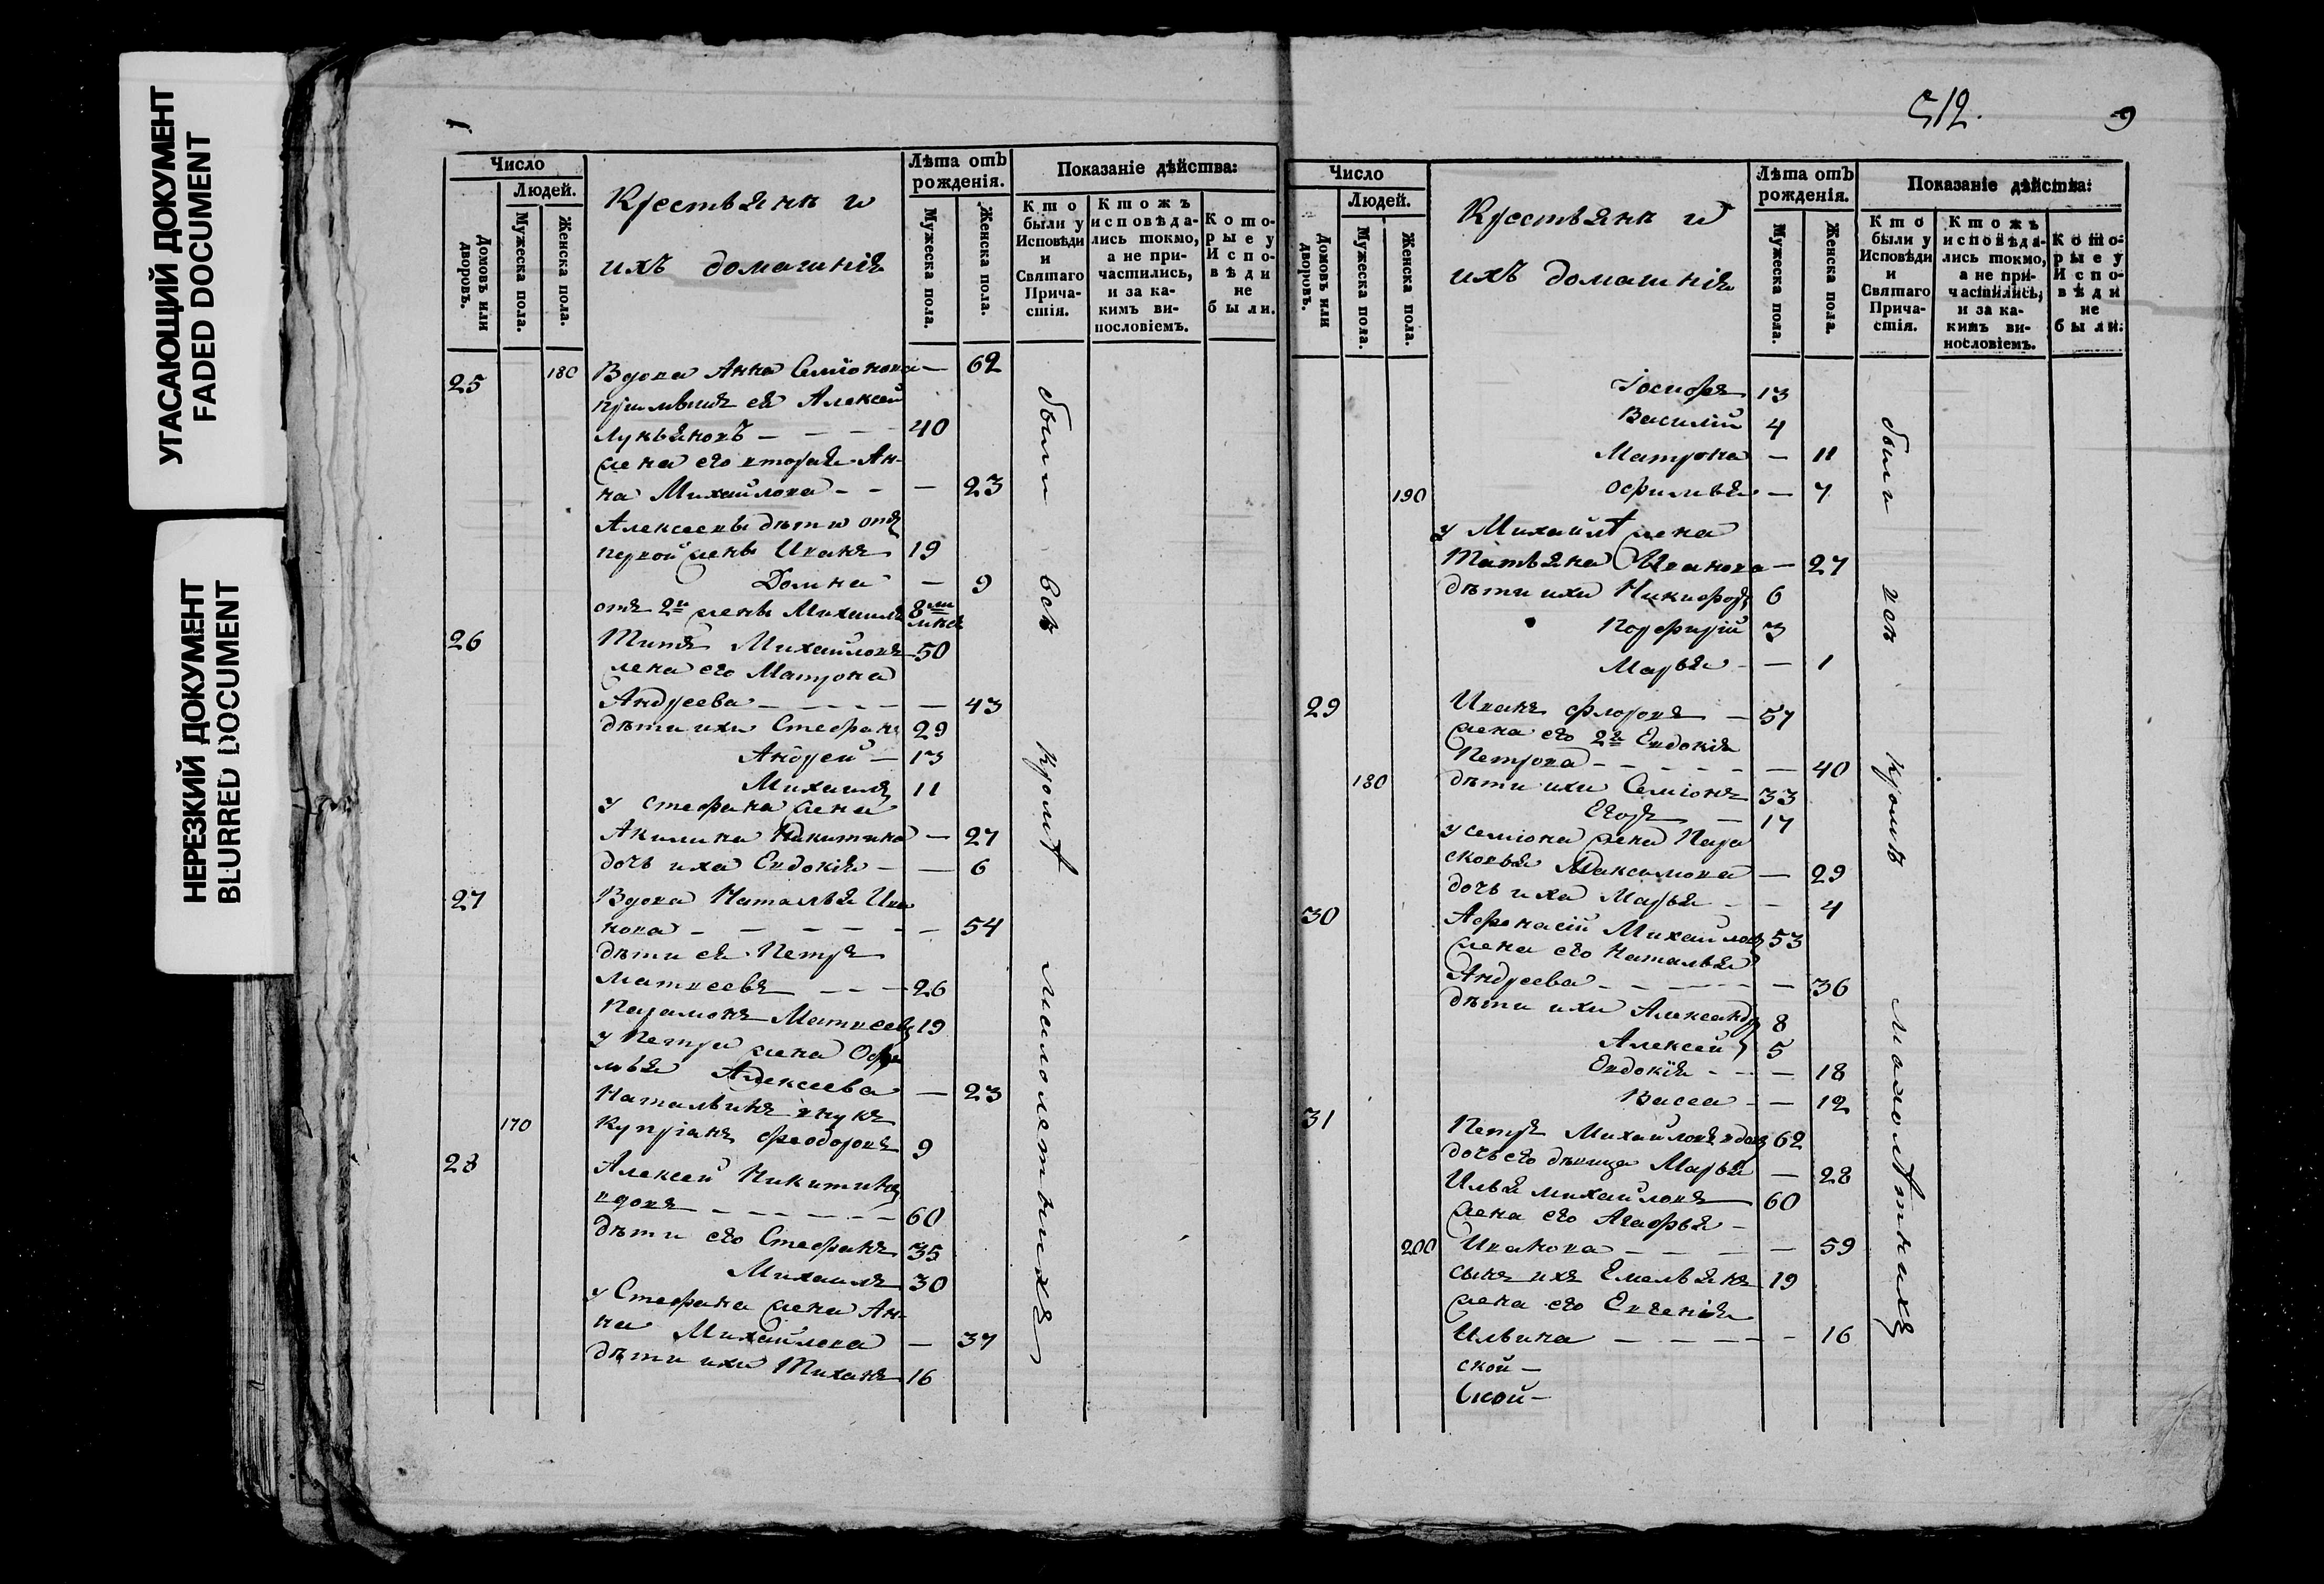 УГАСАЮЩИЙ ДОКУМЕНТ
FADED DOCUMENT
НЕРЕЗКИЙ ДОКУМЕНТ
BLURRED DOCUMENT
Число
Людей.
Домовъ или дворовъ.
Мужеска пола.
Женска пола.
Крестьянъ и
ихъ домашнія
Лѣта отъ рожденія.
Мужеска пола.
Женска пола.
Показаніе дѣйства:
Кто были у Исповѣди и Святаго Прича-стія.
Ктожъ исповѣда-лись токмо, а не при-частились, и за ка-кимъ ви-нословіемъ.
Кото-рые у Испо-вѣди не были.
25 180 Вдова Анна Семіонова — 62
племѣникъ ея Алексей
Лукьяновъ — — — 40
жена его вторая Ан-
на Михайлова — — — 23
Алексеевы дѣти отъ
первой жены Иванъ 19
Домна — 9
отъ 2й жены Михаилъ 8ми
мѣся
26 Титъ Михайловъ 50
жена его Матрона
Андреева — — — — 43
дѣти ихъ Стефанъ 29
Андрей — 13
Михаилъ 11
у Стефана жена
Акилина Никитина — 27
дочь ихъ Евдокія — — 6
27 Вдова Наталья Ива
нова — — — — — 54
дѣти ея Петръ
Матвеевъ — — — 26
Парамонъ Матвеевъ 19
у Петра жена Офи
мья Алексеева — 23
Натальинъ внукъ
170 Купріанъ Феодоровъ 9
28 Алексей Никитинъ
вдовъ — — — — — 60
дѣти его Стефанъ 35
Михаилъ 30
у Стефана жена Ан-
на Михайлова — 37
дѣти ихъ Тихонъ 16
были всѣ кромѣ малолетныихъ
512. 9
Число
Людей.
Домовъ или дворовъ.
Мужеска пола.
Женска пола.
Крестьянъ и
ихъ домашнія
Лѣта отъ рожденія.
Мужеска пола.
Женска пола.
Показаніе дѣйства:
Кто были у Исповѣди и Святаго Прича-стія.
Ктожъ исповѣда-лись токмо, а не при-частились, и за ка-кимъ ви-нословіемъ.
Кото-рые у Испо-вѣди не были.
Іосифъ 13
Василій 4
Матрона — 11
190 Офимья — 7
у Михайлѣ жена
Татьяна Иванова — 27
дѣти ихъ Никифоръ 6
Порфирій 3
Марья — — 1
29 Иванъ Флоровъ — 57
жена его 2я Евдокія
Петрова — — — — — 40
180 дѣти ихъ Семіонъ 33
Егоръ — 17
у Семіона жена Пара
сковья Максимова — 29
дочь ихъ Марья — — 4
30 Афонасій Михайловъ 53
жена его Наталья
Андреева — — — — — 36
дѣти ихъ Александръ 8
Алексей 5
Евдокія — — — 18
Васса — — 12
31 Петръ Михайловъ вдовъ 62
дочь его дѣвица Марья — 28
Илья Михайловъ 60
жена его Агафья —
200 Иванова — — — — 59
сынъ ихъ Емельянъ 19
жена его Евгенія
Ильина — — — — — 16
ской —
ской —
были всѣ кромѣ малолѣтнихъ